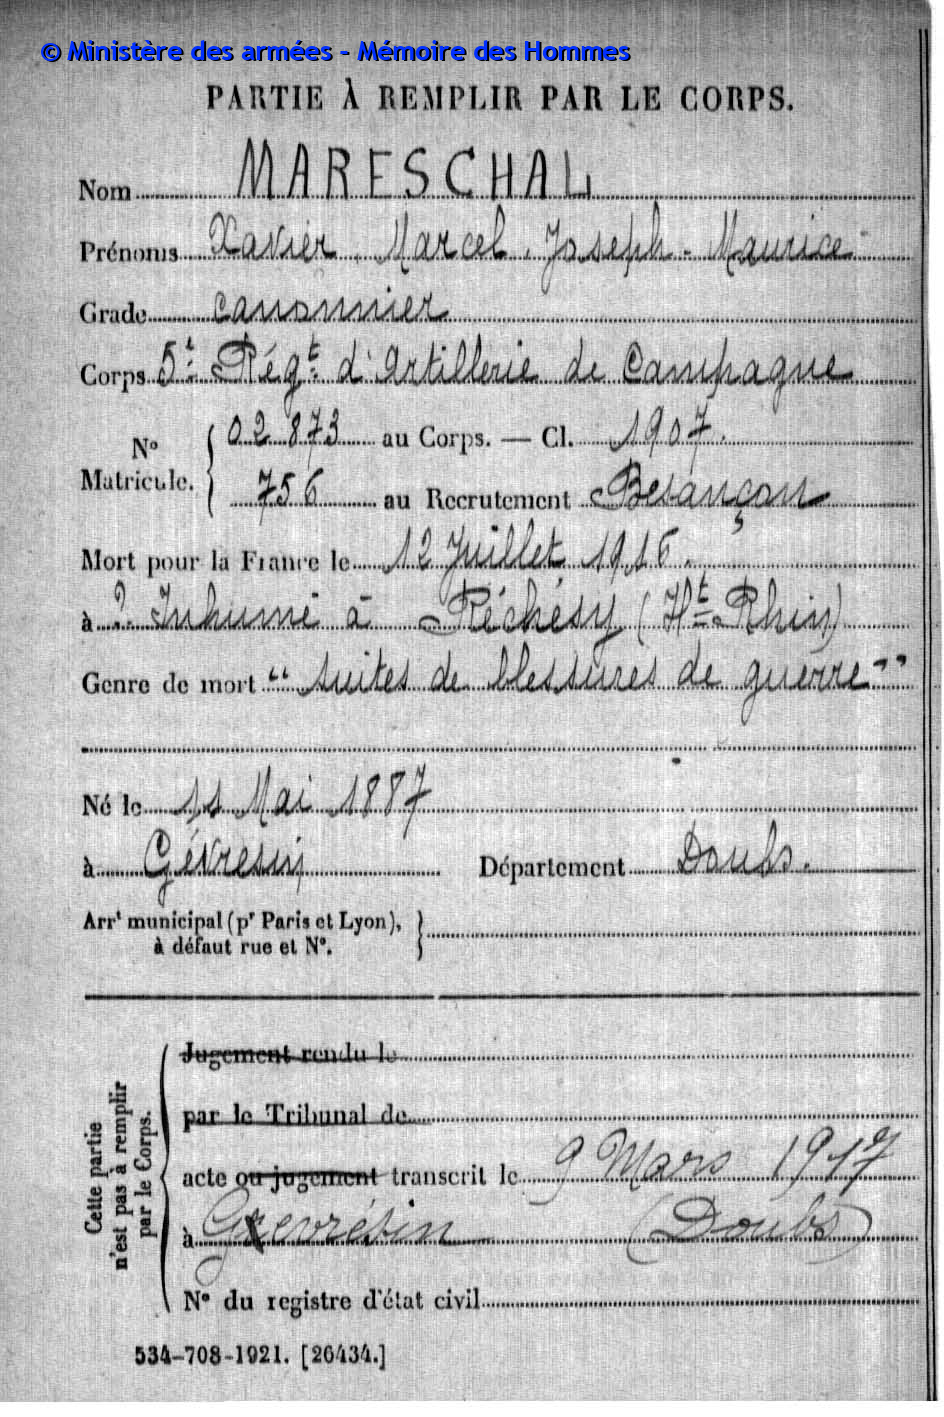 © Ministère des armées - Mémoire des Hommes
PARTIE À REMPLIR PAR LE CORPS.
Nom MARESCHAL
Prénoms Xavier, Marcel, Joseph - Maurice
Grade canonnier
Corps 5e Régt d'Artillerie de Campagne
No
Matricule.
02 873 au Corps. — Cl. 1907.
756 au Recrutement Besançon
Mort pour la France le 12 Juillet 1916.
à ? Inhumé à Réchésy (Ht-Rhin)
Genre de mort "suites de blessures de guerre"
Né le 11 Mai 1887
à Gévresin Département Doubs.
Arrt municipal (pr Paris et Lyon),
à défaut rue et No.
Cette partie
n'est pas à remplir
par le Corps.
Jugement rendu le
par le Tribunal de
acte ou jugement transcrit le 9 Mars 1917
à Gevrésin (Doubs)
No du registre d'état civil
534-708-1921. [26434.]